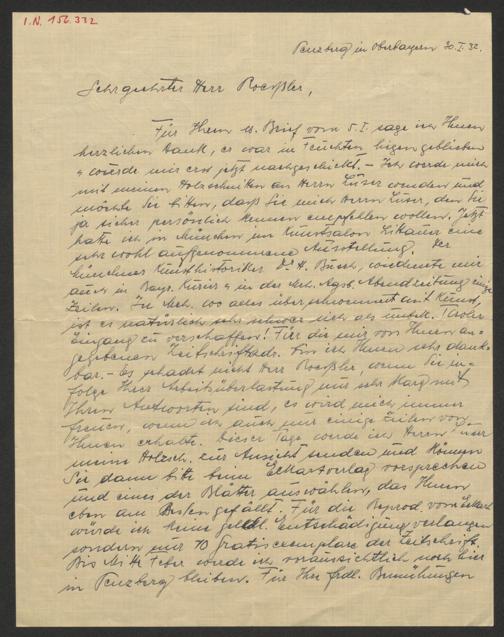 I.N. 156.332
Penzberg in Oberbayern 30.I.32.
Sehrgeehrter Herr Roeßler,
Für Ihren Brief vom 5.I. sage ich Ihnen
herzlichen Dank, er war in Feuchten liegen geblieben
u. wurde mir erst jetzt nachgeschickt. – Ich werde mich
mit meinen Holzschnitten an Herrn Luser wenden und
möchte Sie bitten, daß Sie mich Herrn Luser, den Sie
ja sicher persönlich kennen empfehlen wollen. Jetzt
hatte ich in München im Kunstsalon eine
sehr wohl aufgenommene Ausstellung. Der
Münchner Kunsthistoriker Dr. H. Busch, widmete mir
auch in Bayr. Kurier u. in der Abendzeitung einige
Zeilen. In wo alles überschwemmt mit Kunst,
ist es natürlich sehr schwer sich als unbek. Tiroler
Eingang zu verschaffen! Für die mir von Ihnen an-
gegebenen bin ich Ihnen sehr dank-
bar. – Es schadet nicht Herr Roeßler, wenn Sie in-
folge Ihrer Arbeitsüberlastung nur sehr karg mit
Ihren Antworten sind, es wird mich immer
freuen, wenn ich auch nur einige Zeilen von
Ihnen erhalte. Dieser Tage werde ich Ihnen nur
meine Holzsch. zur Ansicht senden und können
Sie dann bitte beim Eckartverlag vorsprechen
und eines der Blätter auswählen, das Ihnen
eben am Besten gefällt. Für die Reprod. vom Eckart
würde ich keine geldl. Entschädigung verlangen
sondern nur 10 Gratisexemplare der Zeitschrift.
Bis Mitte Feber werde ich voraussichtlich noch hier
in Penzberg bleiben. Für Ihre frdl. Bemühungen